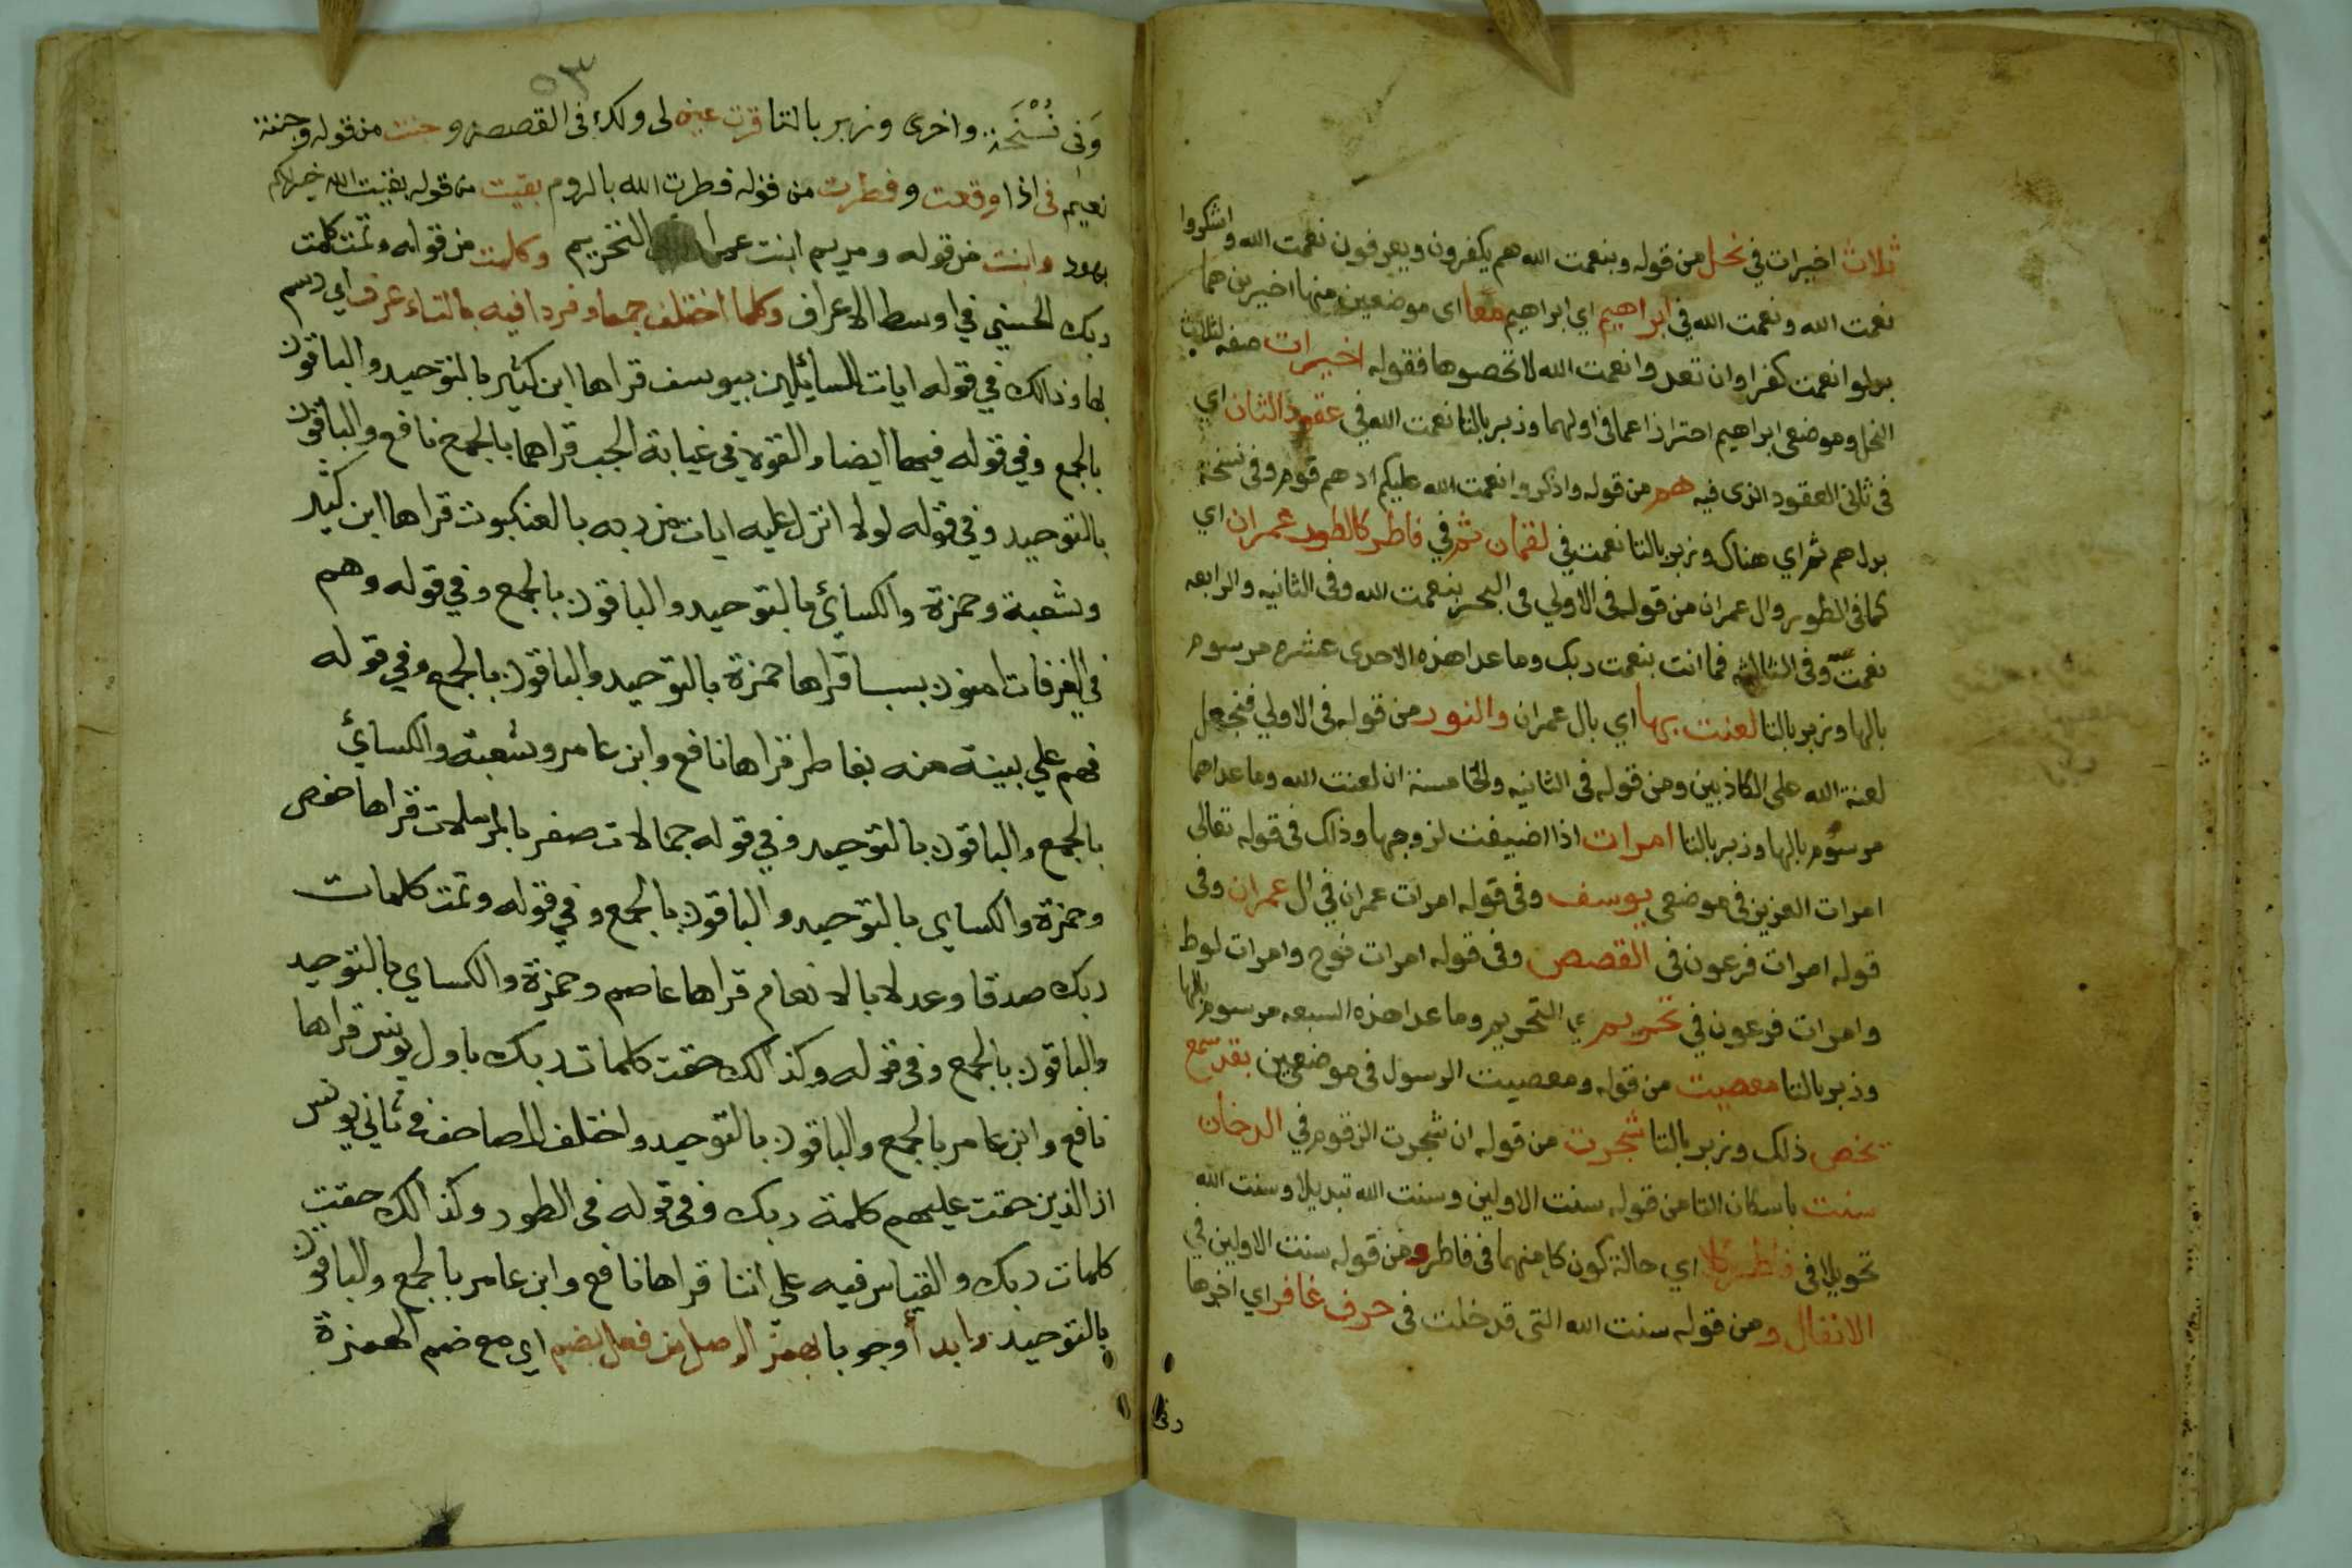 ثلاث اخيرات في نحل من قوله وبنعمت الله هم يكفرون ويعرفون نعمت الله واشكروا
نعمت الله ونعمت الله في ابراهيم اي ابراهيم معا اى موضعين منها اخيرين هما
بدلوا نعمت كفرا وان تعدوا نعمت الله لا تحصوها فقوله اخيرات صفه لثلاث
النحل وموضعى ابراهيم احترازا عما فى اولهما وزبر بالتا نعمت الله في عقود الثان اي
فى ثانى العقود الذى فيه هم من قوله واذكروا نعمت الله عليكم اذ هم قوم وفى نسخة
بدل هم ثم اي هناك وزبر بالتا نعمت في لقمان ثم في فاطر كالطور عمران اي
كما فى الطور وال عمران من قوله فى الاولي فى البحر بنعمت الله وفى الثانيه والرابعه
نعمت وفى الثالثه فما انت بنعمت ربك وما عدا هذه الاحدى عشره مرسوم
بالها وزبر بالتا لعنت بها اي بال عمران والنور من قوله فى الاولي فنجعل
لعنة الله على الكاذبين ومن قوله فى الثانيه والخامسة ان لعنت الله وما عداهما
مرسوم بالها وزبر بالتا امرات اذا اضيفت لزوجها وذلك فى قوله تعالى
امرات العزيز فى موضعى يوسف وفى قوله امرات عمران في ال عمران وفى
قوله امرات فرعون فى القصص وفى قوله امرات نوح وامرات لوط
وامرات فرعون في تحريم اي التحريم وما عدا هذه السبعه مرسوم بالها
وزبر بالتا معصيت من قوله ومعصيت الرسول فى موضعين بقد سمع
يخص ذلك وزبر بالتا شجرت من قوله ان شجرت الزقوم في الدخان
سنت باسكان التا من قوله سنت الاولين وسنت الله تبديلا وسنت الله
تحويلا فى فاطر كلا اي حالة كون كل منهما فى فاطر ومن قوله سنت الاولين في
الانفال ومن قوله سنت الله التى قد خلت فى حرف غافر اي اخرها
وفى
٥٣
وَفى نُسْخَة واخرى وزبر بالتا قرت عين لى ولك فى القصص وجنت من قوله وجنة
نعيم فى اذا وقعت وفطرت من قوله فطرت الله بالروم بقيت من قوله بقيت الله خير لكم
بهود وابنت من قوله ومريم ابنت عمران التحريم وكلمت من قوله وتمت كلمت
ربك الحسني في اوسط الاعراف وكلما اختلف جمعا وفردا فيه بالتاء عرف اي رسم
بها وذالك في قوله ايات للسائيلين بيوسف قراها ابن كثير بالتوحيد والباقون
بالجمع وفي قوله فيها ايضا والقوه في غيابة الجب قراهما بالجمع نافع والباقون
بالتوحيد وفي قوله لولا انزل عليه ايات من ربه بالعنكبوت قراها ابن كثير
وشعبة وحمزة والكسائ بالتوحيد والباقون بالجمع وفي قوله وهم
في الغرفات امنون بسبا قراها حمزة بالتوحيد والباقون بالجمع وفي قوله
فهم علي بينة منه بفاطر قراها نافع وابن عامر وشعبة والكسائ
بالجمع والباقون بالتوحيد وفي قوله جمالات صفر بالمرسلات قراها حفص
وحمزة والكساي بالتوحيد والباقون بالجمع وفي قوله وتمت كلمات
ربك صدقا وعدلا بالانعام قراها عاصم وحمزة والكساي بالتوحيد
والباقون بالجمع وفى قوله وكذالك حقت كلمات ربك باول يونس قراها
نافع وابن عامر بالجمع والباقون بالتوحيد واختلف المصاحف في ثاني يونس
ان الذين حقت عليهم كلمة ربك وفى قوله فى الطور وكذالك حقت
كلمات ربك والقياس فيه علي انتا قراها نافع وابن عامر بالجمع والباقون
بالتوحيد وابدأ وجوبا بهمز الوصل من فعل بضم اي مع ضم الهمزة